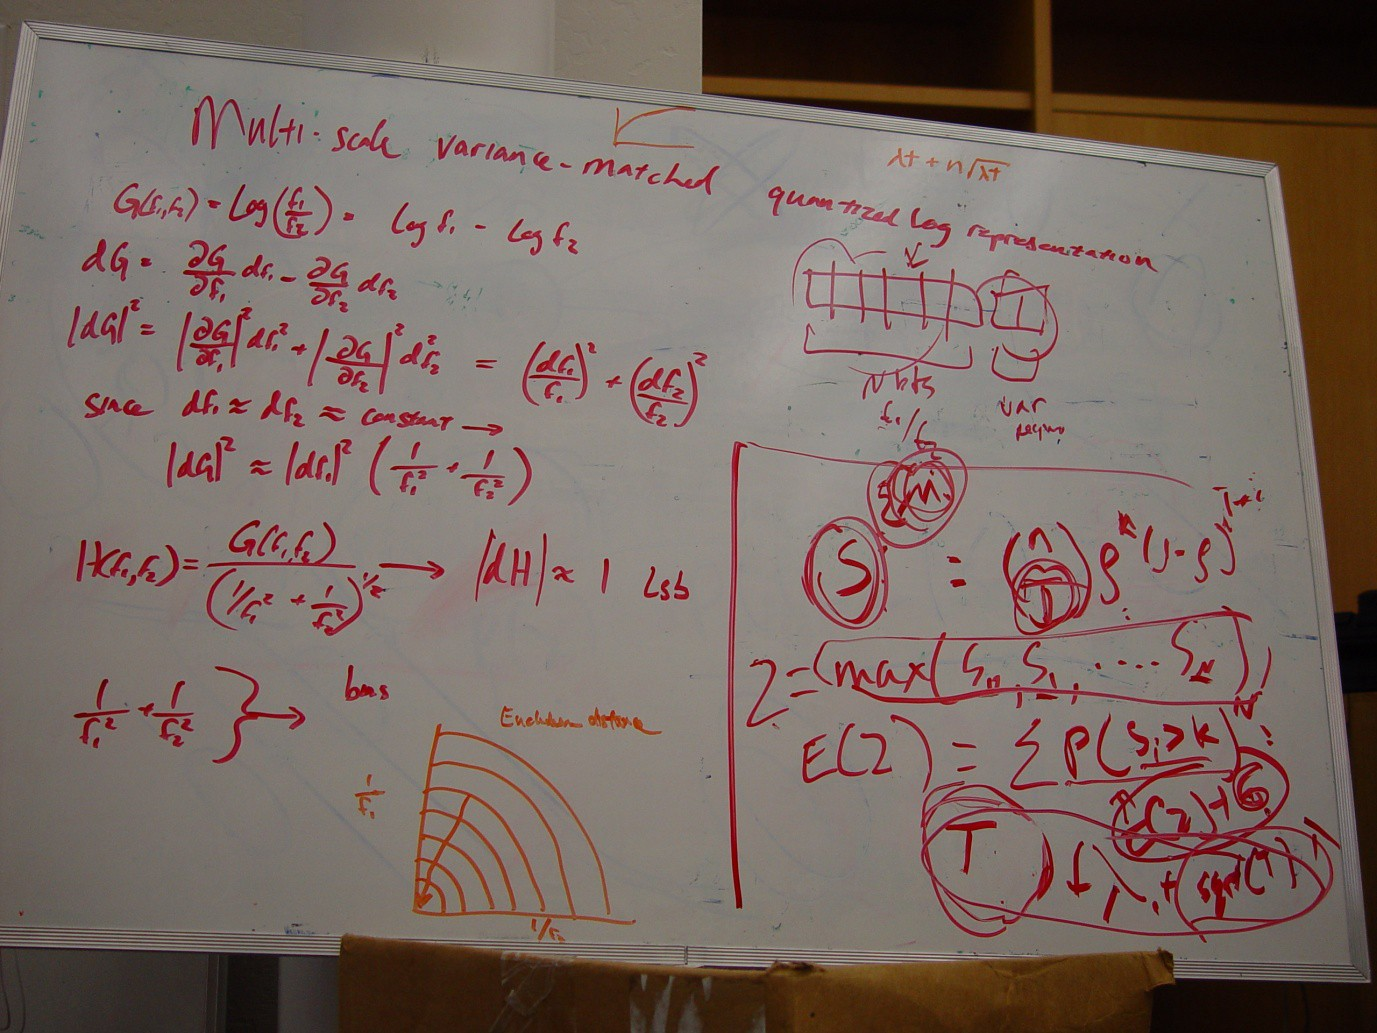 Multi-scale variance-matched quantized log representation
λt + n√λt
G(f₁,f₂) = Log(f₁/f₂) = Log f₁ - Log f₂
dG = ∂G/∂f₁ df₁ - ∂G/∂f₂ df₂
|dG|² = |∂G/∂f₁|² df₁² + |∂G/∂f₂|² df₂² = (df₁/f₁)² + (df₂/f₂)²
since df₁ ≈ df₂ ≈ constant →
|dG|² ≈ |df₁|² (1/f₁² + 1/f₂²)
H(f₁,f₂) = G(f₁,f₂) / (1/f₁² + 1/f₂²)^1/2 → |dH| ≈ 1 Lsb
1/f₁² + 1/f₂² } →
Euclidean distance
1/f₁
1/f₂
N bits
f₁/f₂
var
S = (n T) ρ^k (1-ρ)
Z = (max(S₁, S₁, .... S_N))
E(Z) = Σ P(S_i > k)
T
sqrt(T)